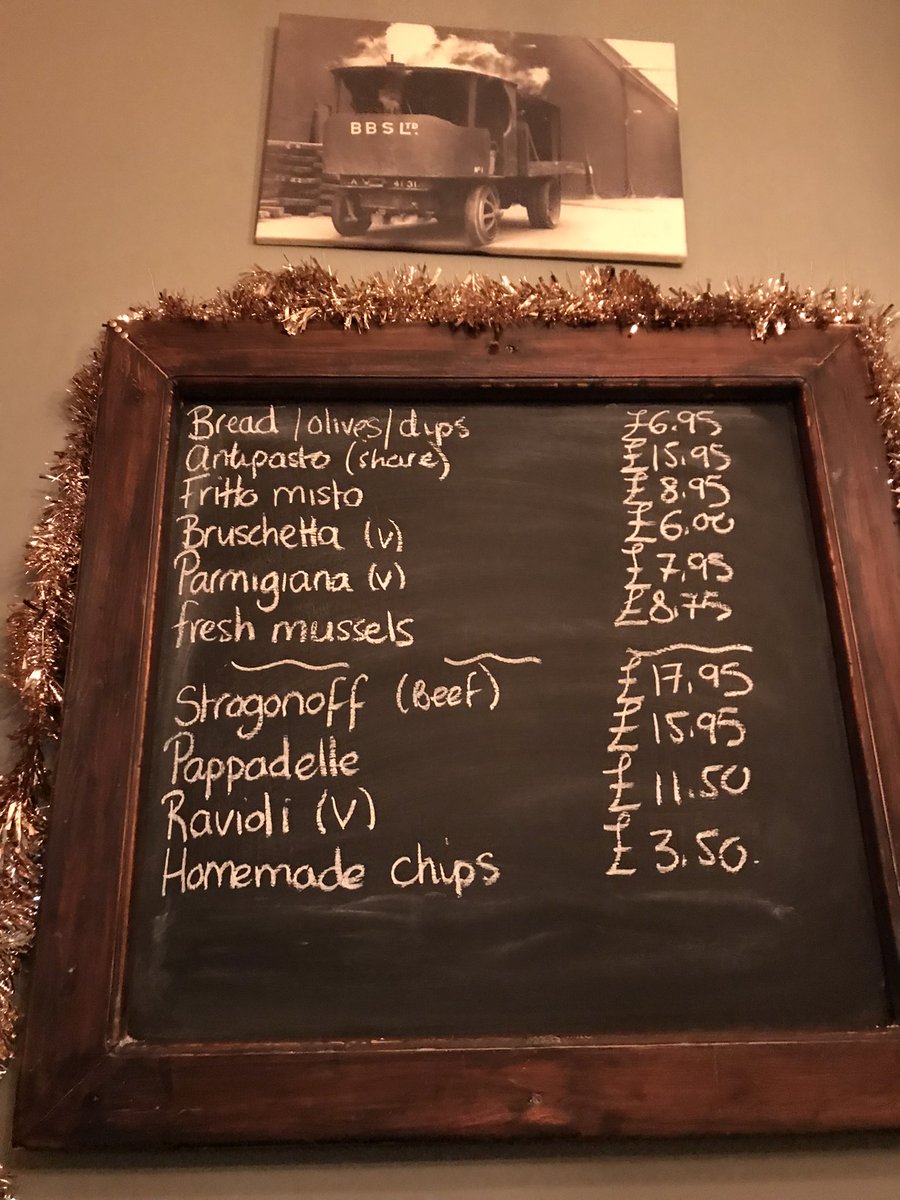 BBS LTD.
Nº1
4131
Bread/olives/dips £6.95
Antipasto (share) £15.95
Fritto misto £8.95
Bruschetta (v) £6.00
Parmigiana (v) £7.95
fresh mussels £8.75
Strogonoff (Beef) £17.95
Pappadelle £15.95
Ravioli (V) £11.50
Homemade chips £3.50.